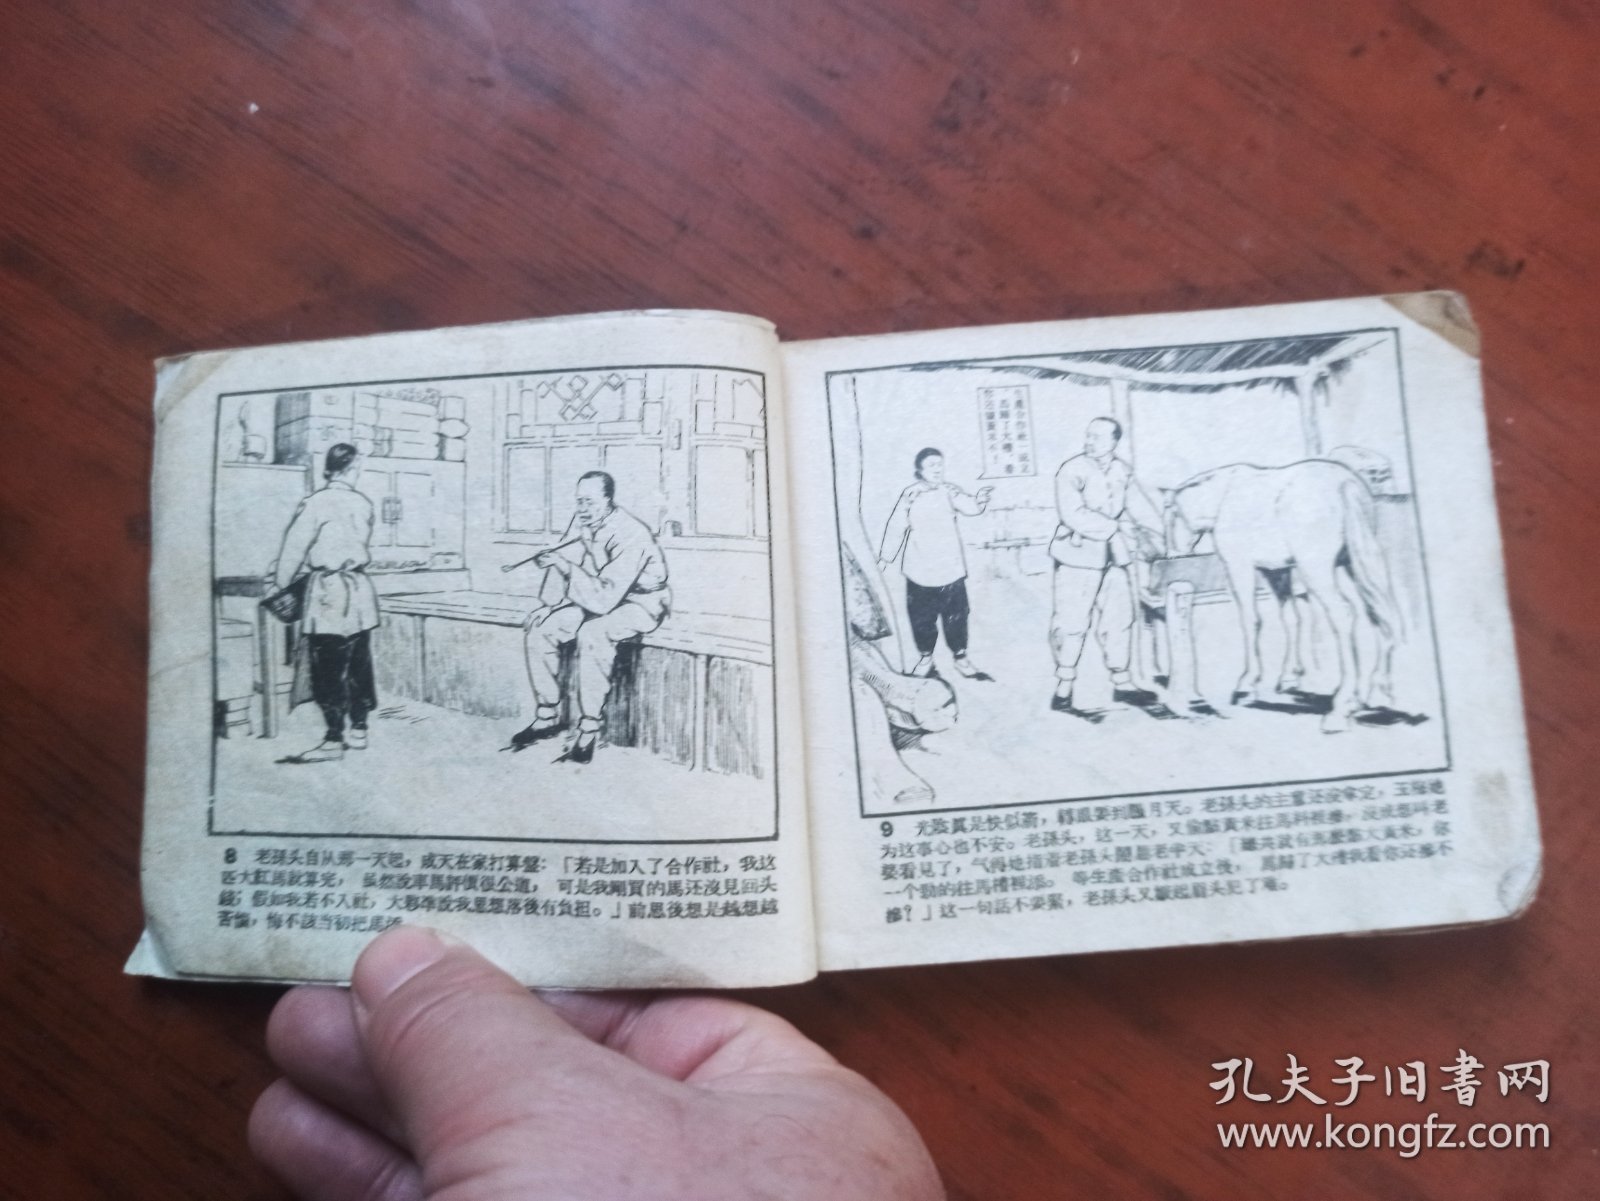 8 老孫头自从那一天起，成天在家打算盤：「若是加入了合作社，我这
匹大紅馬就算完，虽然說車馬評價很公道，可是我剛買的馬还沒見回头
錢；假如我若不入社，大夥准說我思想落後有負担。」前思後想是越想越
苦惱，悔不該当初把馬
9 光陰眞是快似箭，轉眼要到臘月天。老孫头的主意还沒拿定，
为这事心也不安。老孫头，这一天，又偷點黃米往馬料根
婆看見了，气得她指着老孫头
一个勁的往馬槽根添。等生產合作社成立後，馬歸了大槽我看你还
摻？」这一句話不要緊，老孫头又皺起眉头犯了难。
生產合作社成立
馬歸了大槽，看
孔夫子旧書网
www.kongfz.com